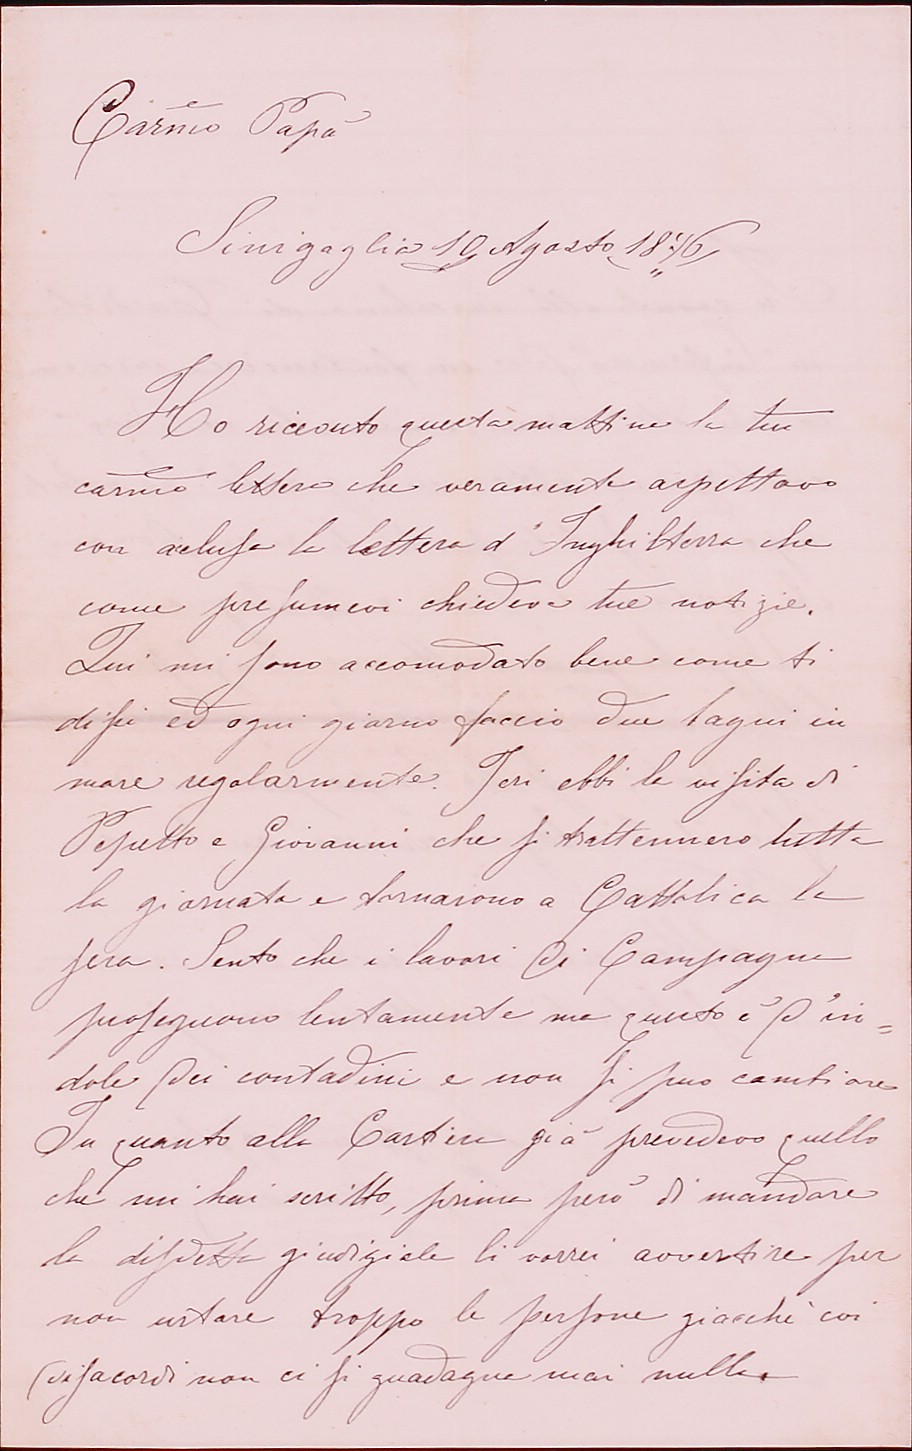 Carmo Papà
Sinigaglia 19 Agosto 1876
Ho ricevuto questa mattina la tua
carma lettera che veramente aspettavo
con aclusa la lettera d'Inghilterra che
come presumevi chiedeva tue notizie.
Qui mi sono accomodato bene come ti
dissi ed ogni giorno faccio due bagni in
mare regolarmente. Ieri ebbi la visita di
Peppetto e Giovanni che si trattennero tutta
la giornata e tornarono a Cattolica la
sera. Sento che i lavori di Campagna
proseguono lentamente ma questo è d'in=
dole dei contadini e non si può cambiare
In quanto alla Cartiera già prevedevo quello
che mi hai scritto, prima però di mandare
la disdetta giudiziale li vorrei avvertire per
non urtare troppo le persone giacchè coi
disacordi non ci si guadagna mai nulla.